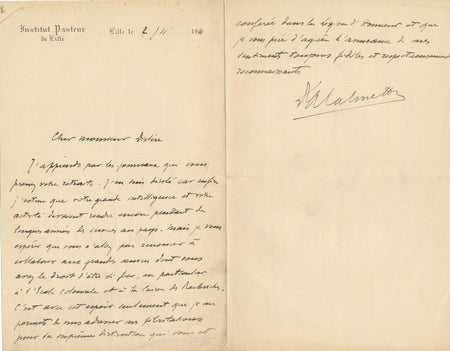 Institut Pasteur
de Lille
Lille le 2/11 190
Cher monsieur
J'apprends par les journaux que vous
prenez votre retraite. J'en suis désolé car
j'estime que votre grande intelligence et votre
activité devaient rendre encore, pendant de
longues années des services au pays. Mais je veux
espérer que vous n'allez pas renoncer à
collaborer aux grandes œuvres dont vous
avez le droit d'être si fier, en particulier
à l'École Coloniale et à la Caisse des Recherches.
C'est avec cet espoir seulement que je me
permets de vous adresser mes félicitations
pour la suprême distinction qui vous est
conférée dans la Légion d'Honneur et que
je vous prie d'agréer l'assurance de mes
sentiments toujours fidèles et respectueusement
reconnaissants
Dr A Calmette